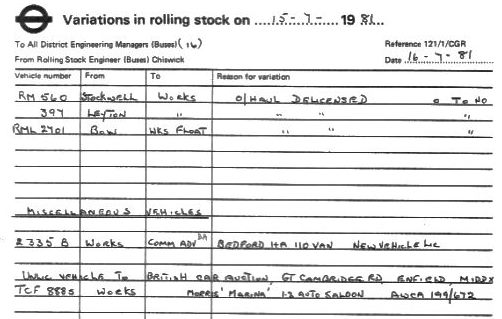 Variations in rolling stock on 15-7- 1981.
To All District Engineering Managers (Buses) (16) Reference 121/1/CGR
From Rolling Stock Engineer (Buses) Chiswick Date 16-7-81
Vehicle number From To Reason for variation
RM 560 Stockwell Works O/HAUL DELICENSED O TO NO
397 LEYTON " " " "
RML 2701 Bow WKS FLOAT " " "
MISCELLANEOUS VEHICLES
2335 B Works COMM ADV BA BEDFORD HA 110 VAN NEW VEHICLE LIC
UNLIC VEHICLE TO BRITISH CAR AUCTION, GT CAMBRIDGE RD, ENFIELD, MIDDX
TCF 888S Works MORRIS 'MARINA' 1-3 AUTO SALOON AWCA 199/672